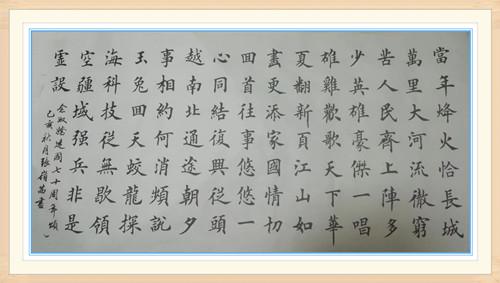 當年烽火恰長城
萬里大河流徹窮
苦人民齊上陣多
少英雄豪傑一唱
雄雞歡歌天下華
夏翻新頁江山如
畫更添家國情切
回首往事悠悠一
心同結復興從頭
越南北通途朝夕
事相約何消頻說
玉兔回天蛟龍探
海科技從無歇領
空疆域强兵非是
虛設
念奴嬌建國七十周年頌
己亥秋月張